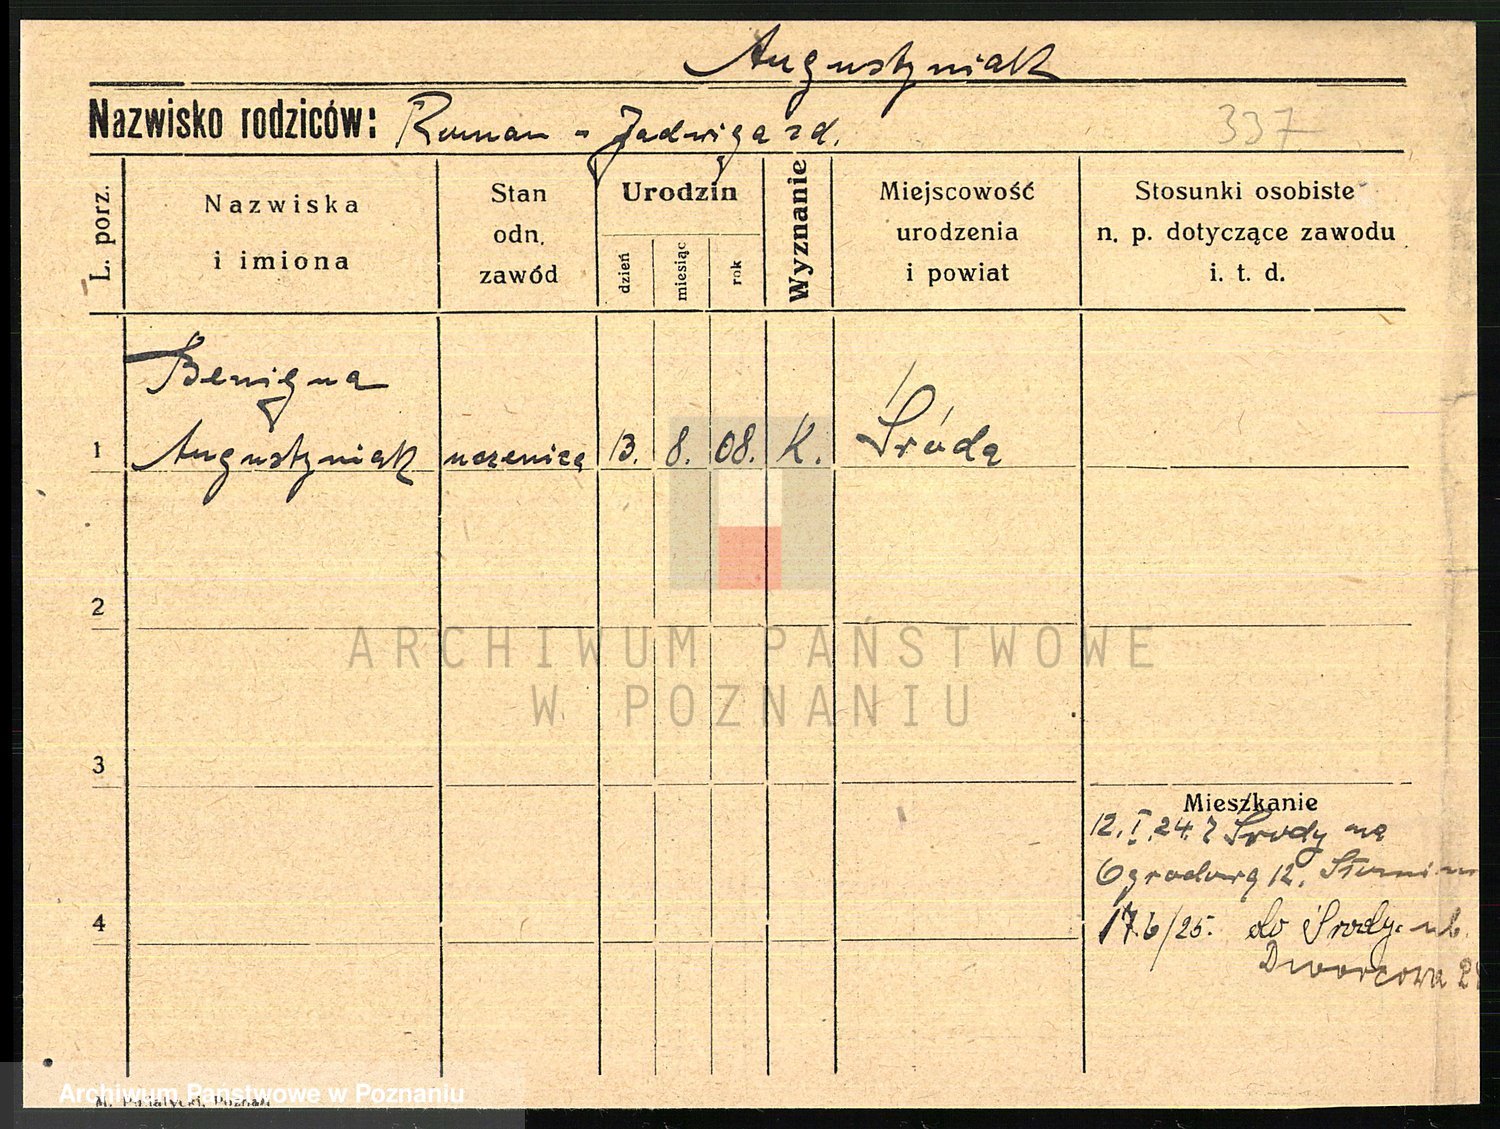 Augustyniak
Nazwisko rodziców: Roman - Jadwiga zd.
337
L. porz.
Nazwiska
i imiona
Stan
odn.
zawód
Urodzin
dzień
miesiąc
rok
Wyznanie
Miejscowość
urodzenia
i powiat
Stosunki osobiste
n. p. dotyczące zawodu
i. t. d.
Benigna
1 Augustyniak uczenica 13. 8. 08. K. Środa
2
ARCHIWUM PAŃSTWOWE
W POZNANIU
3
Mieszkanie
12. I. 24. z Środy na
Ogrodową 12.
4
17.6/25. do Środy ul.
Dworcowa
Archiwum Państwowe w Poznaniu
Poznań